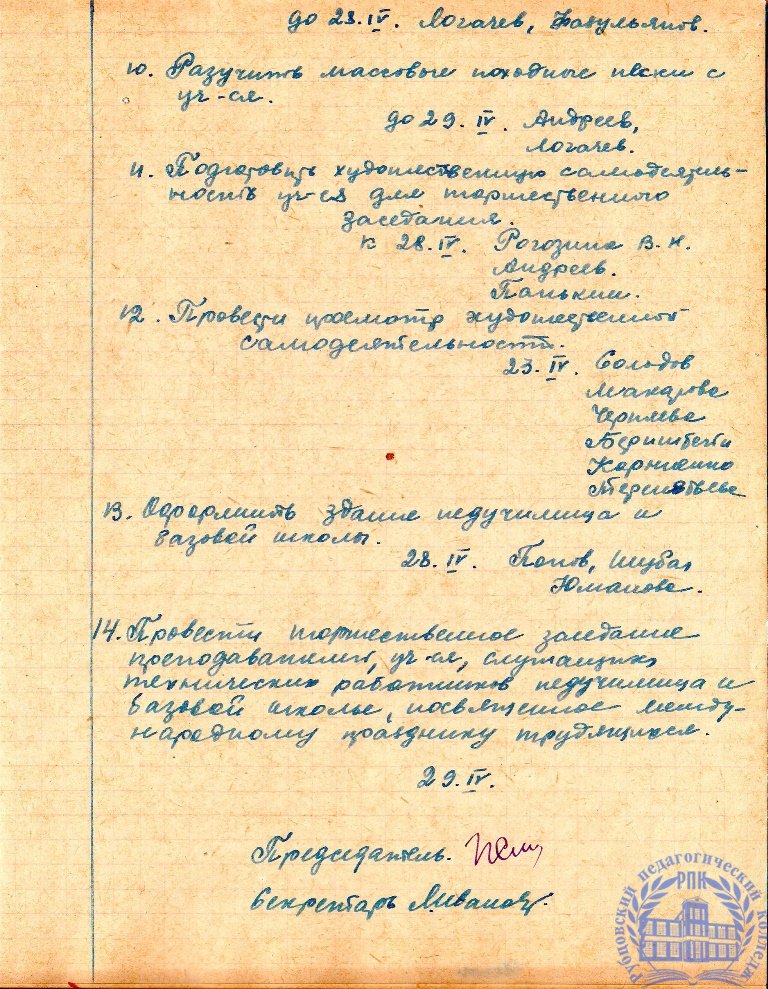 до 23.IV. Логачев,
10. Разучить массовые походные песни с
уч-ся.
до 29.IV. Андреев,
Логачев.
11. Подготовить художественную самодеятель-
ность уч-ся для торжественного
заседания.
к 28.IV. Рогозина В.Н.
Андреев.
Панькин.
12. Провести просмотр художественной
самодеятельности.
23.IV. Солодов
Макарова
Карпченко
Терентьева
13. Оформить здание педучилища и
базовой школы.
28.IV. Попов, Шубал
Юманова.
14. Провести торжественное заседание
преподавателей, уч-ся, служащих,
технических работников педучилища и
базовой школы, посвященное между-
народному празднику трудящихся.
29.IV.
Председатель.
Секретарь
Рубцовский педагогический колледж
РПК